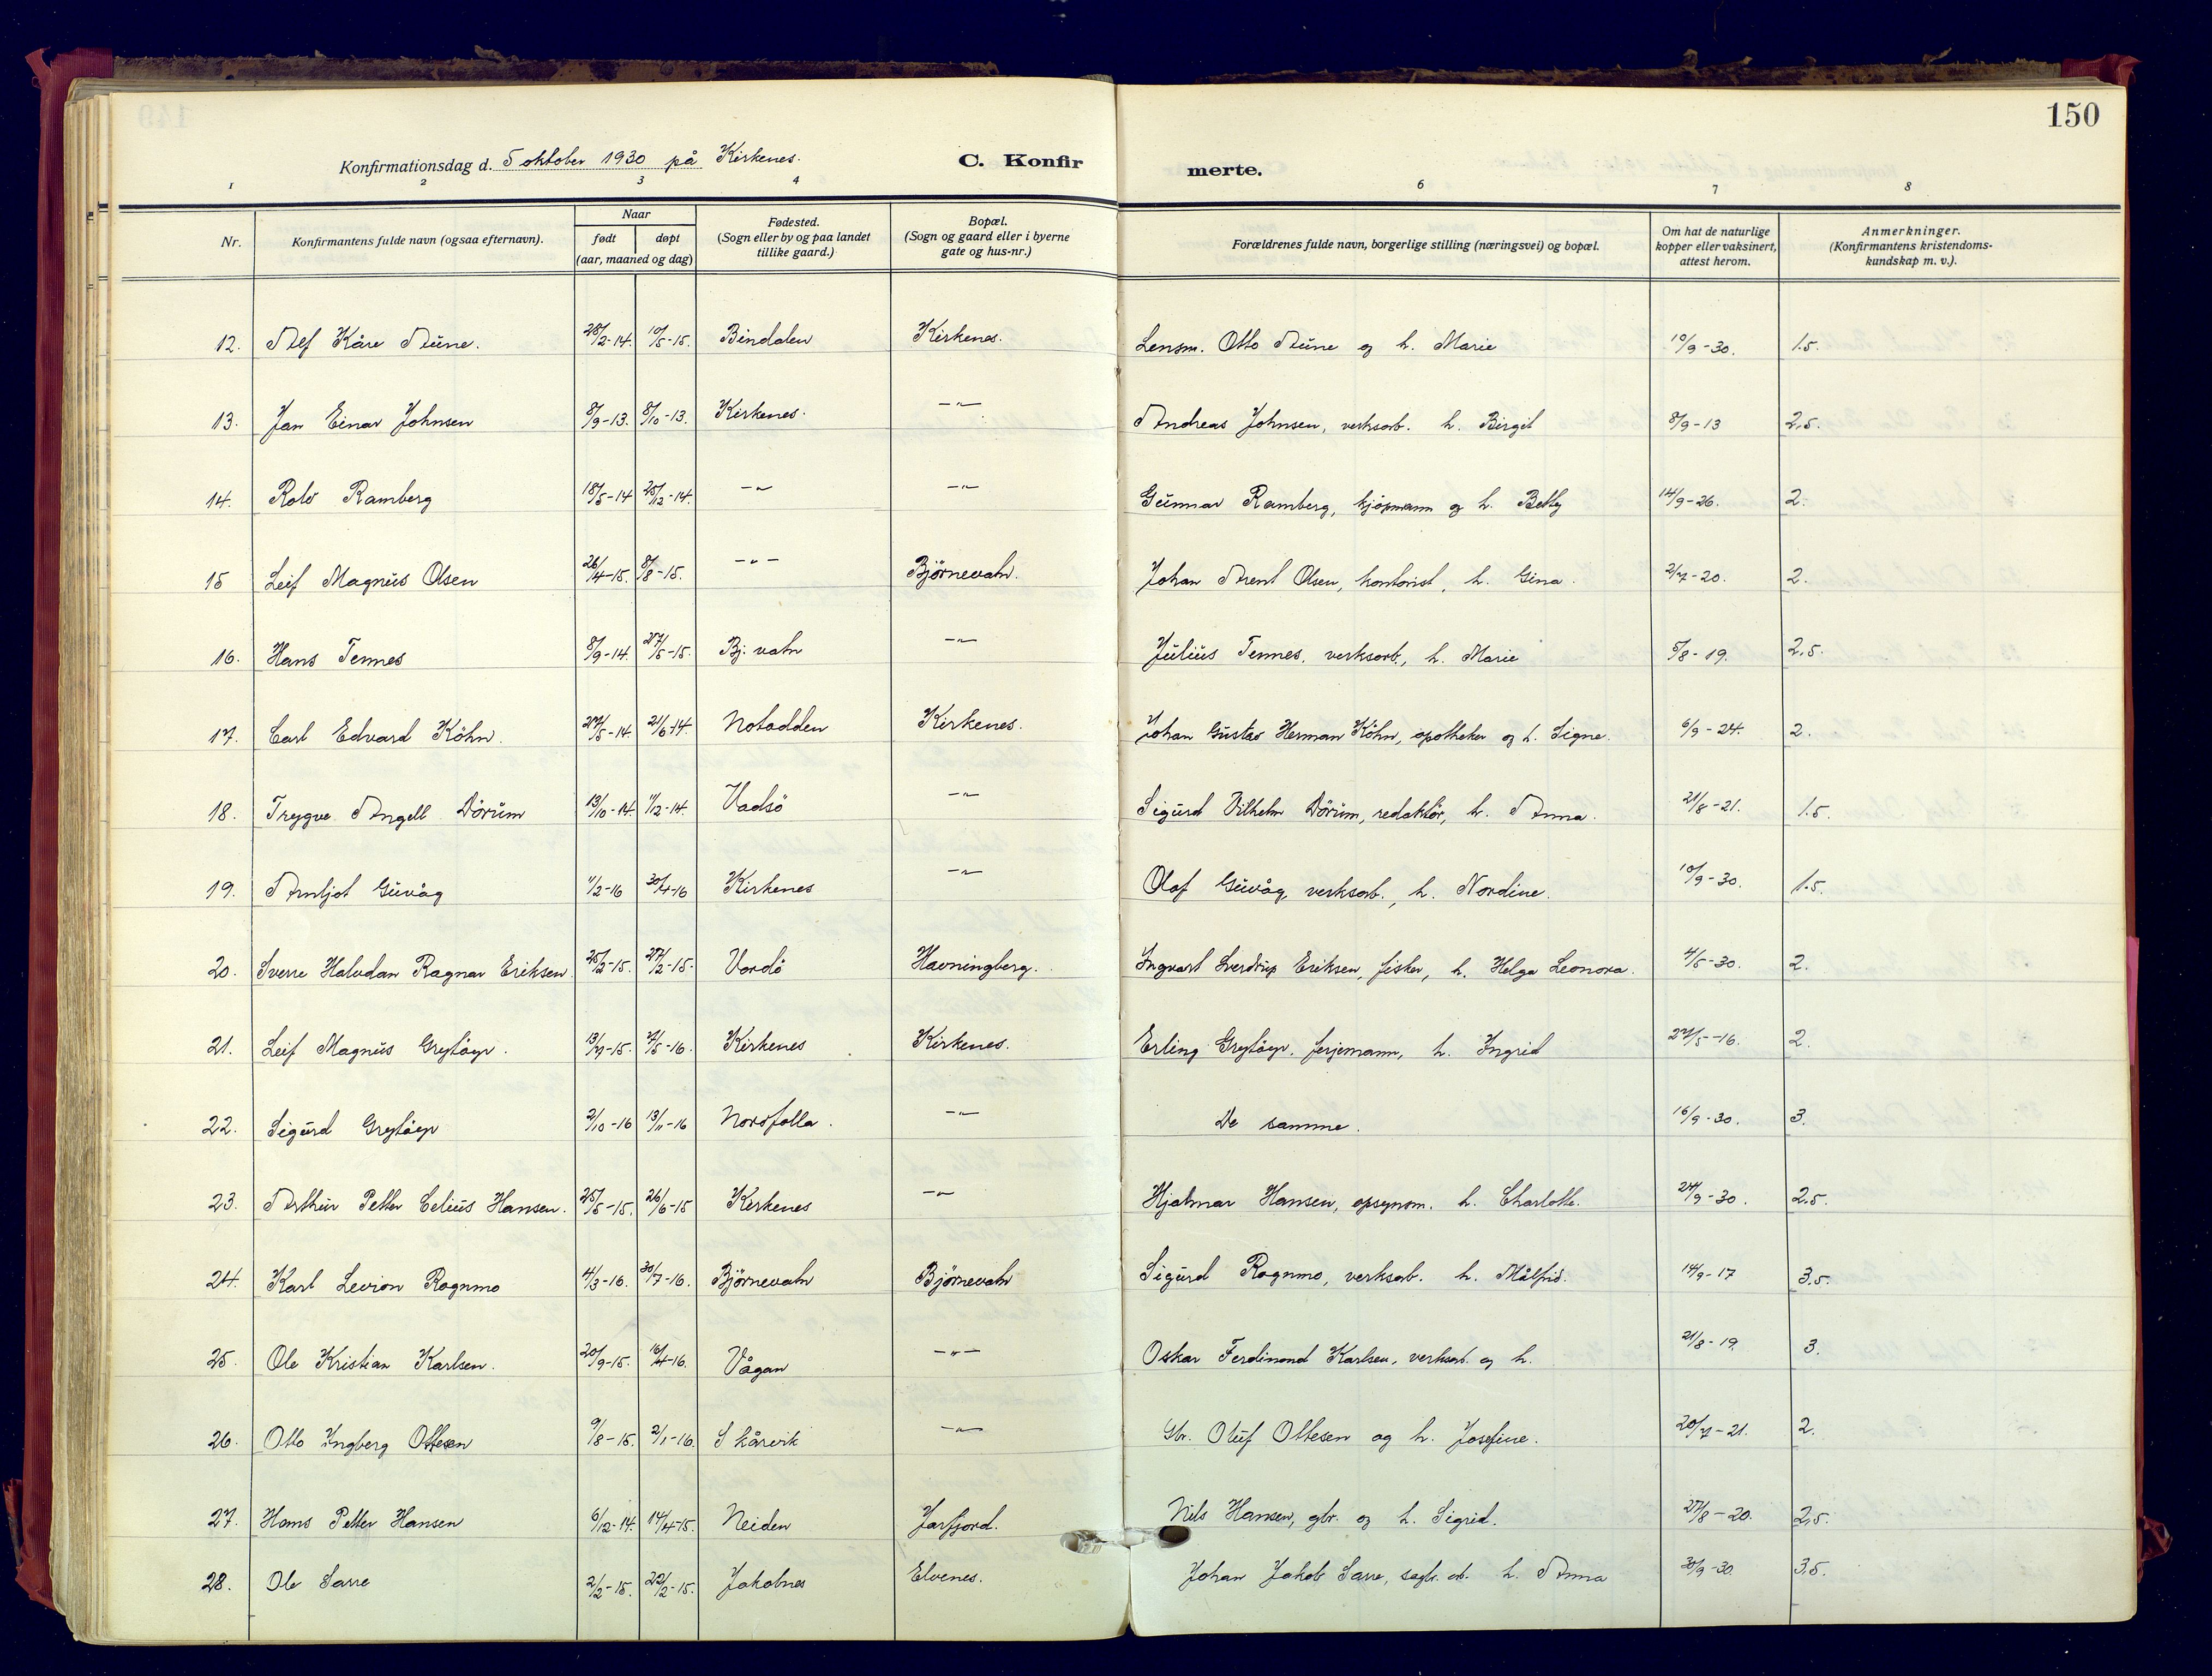 150
Konfirmationsdag d. 5 oktober 1930 på Kirkenes.
C. Konfirmerte.
1 2 3 4 6 7 8
Nr.
Konfirmantens fulde navn (ogsaa efternavn).
Naar
født døpt
(aar, maaned og dag)
Fødested.
(Sogn eller by og paa landet
tillike gaard.)
Bopæl.
(Sogn og gaard eller i byerne
gate og hus-nr.)
Forældrenes fulde navn, borgerlige stilling (næringsvei) og bopæl.
Om hat de naturlige
kopper eller vaksinert,
attest herom.
Anmerkninger.
(Konfirmantens kristendoms-
kundskap m. v.).
12. Alf Kåre Aune. 28/2-14. 10/5-15. Bindalen Kirkenes. Lensm. Otto Aune og h. Marie 10/9-30. 1.5.
13. Jan Einar Johnsen 8/9-13. 8/10-13. Kirkenes. -"- Andreas Johnsen, verksarb. h. Birgit 8/9-13 2,5.
14. Rolv Ramberg 18/5-14 25/12-14. -"- -"- Gunnar Ramberg, kjöpmann og h. Betty 14/9-26. 2.
15 Leif Magnus Olsen 26/4-15. 8/8-15. -"- Björnevatn. Johan Arent Olsen, kontorist, h. Gina. 2/7-20. 2.
16. Hans Tennes 8/9-14. 27/5-15. Bj. vatn -"- Julius Tennes, verksarb., h. Marie 5/8-19. 2,5.
17. Carl Edvard Köhn. 27/5-14. 21/6-14. Notodden Kirkenes. Johan Gustav Herman Köhn, apotheker og h. Signe. 6/9-24. 2.
18. Trygve Angell Dörum 13/10-14. 11/12-14. Vadsö -"- Sigurd Vilhelm Dörum, redaktör, h. Anna. 21/8-21. 1.5.
19. Arnljot Guvåg 11/2-16 30/4-16 Kirkenes -"- Olaf Guvåg, verksarb., h. Nordine. 10/9-30. 1.5.
20. Sverre Halvdan Ragnar Eriksen. 25/2-15. 27/2-15. Vardö Havningberg. Ingvart Sverdrup Eriksen, fisker, h. Helga Leonora. 4/5-30. 2.
21. Leif Magnus Grytöyr. 13/7-15. 7/5-16. Kirkenes Kirkenes. Erling Grytöyr, ferjemann, h. Ingrid 27/5-16. 2.
22. Sigurd Grytöyr 2/10-16 13/11-16 Nordfolla. -"- De samme. 16/9-30. 3.
23. Arthur Petter Celius Hansen. 25/5-15. 26/6-15 Kirkenes -"- Hjalmar Hansen, opsynsm. h. Charlotte. 24/9-30. 2,5.
24. Karl Levion Rognmo 4/3-16. 30/7-16. Björnevatn Björnevatn Sigurd Rognmo, verksarb. h. Målfrid. 14/9-17 3,5.
25. Ole Kristian Karlsen. 20/9-15. 16/4-16. Vågan -"- Oskar Ferdinand Karlsen, verksarb. og h. 21/8-19. 3.
26. Otto Ingberg Ottesen 9/8-15. 2/1-16. Skårvik -"- Gbr. Oluf Ottesen og h. Josefine. 20/7-21. 2.
27. Hans Petter Hansen 6/12-14. 14/4-15. Neiden Jarfjord. Nils Hansen, gbr. og h. Sigrid. 27/8-20. 2,5.
28. Ole Sarre 2/2-15. 22/2-15. Jakobnes Elvenes. Johan Jakob Sarre, sagbr. arb. h. Anna 30/9-30. 3,5.